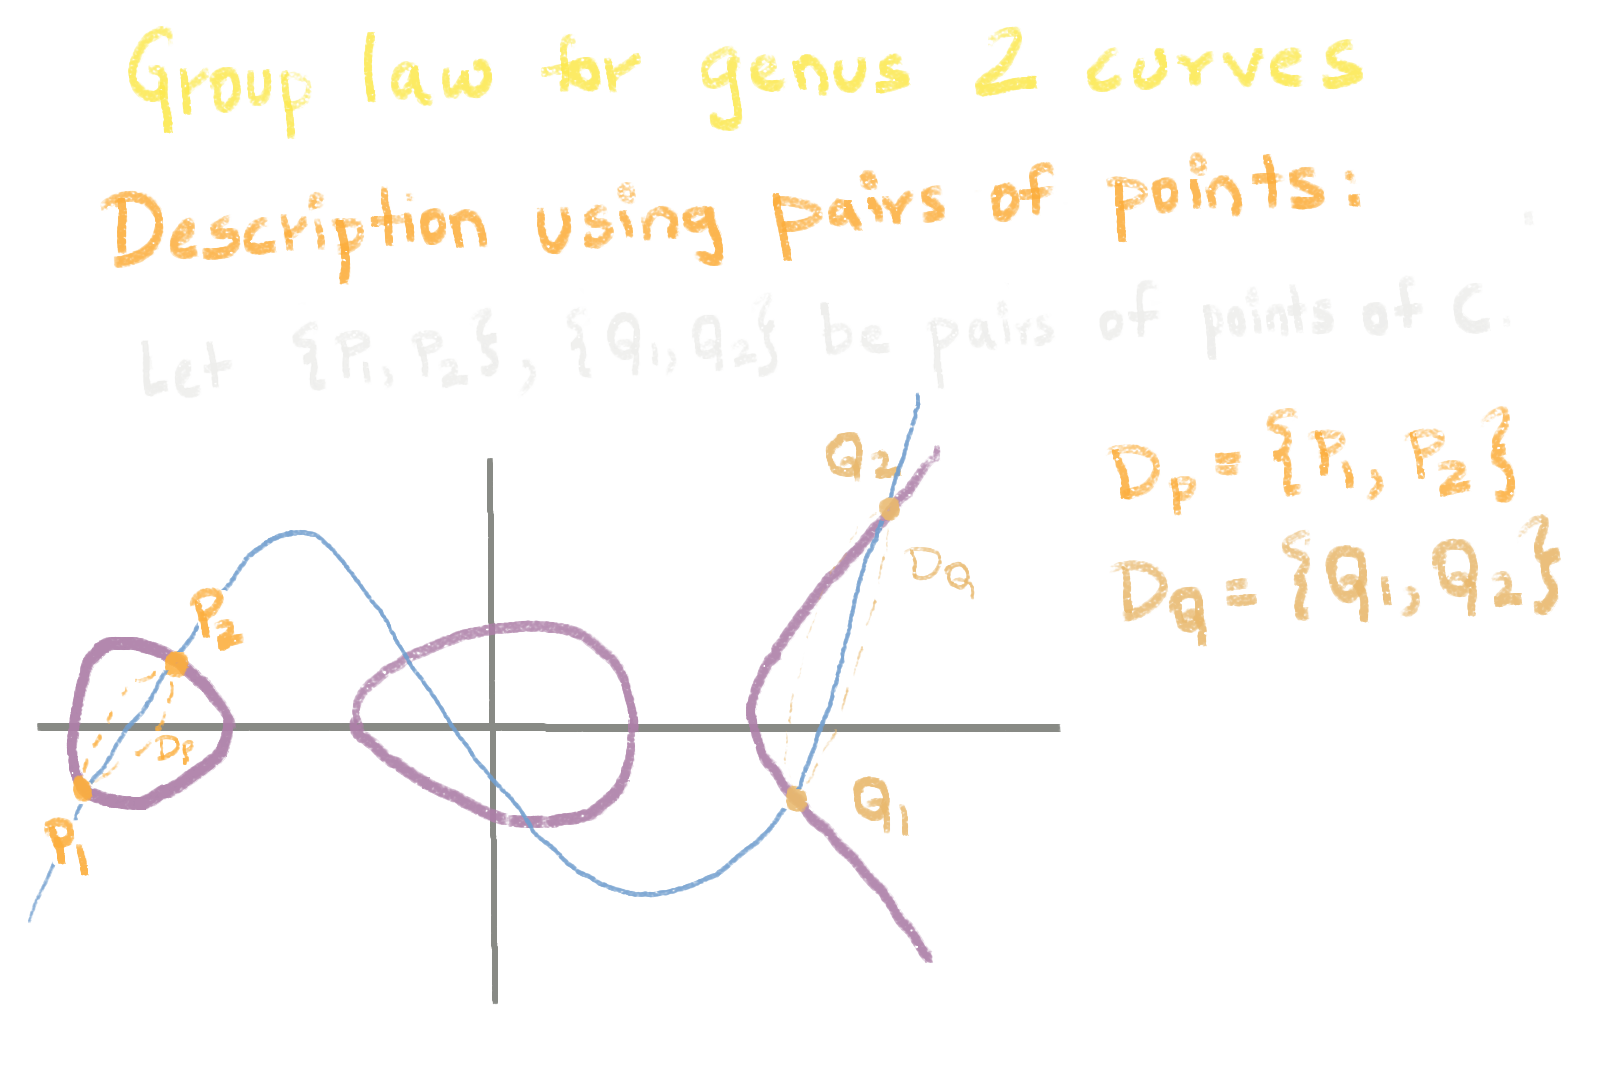 Group law for genus 2 curves
Description using pairs of points:
Let {P₁, P₂}, {Q₁, Q₂} be pairs of points of C.
Q₂
D_P = {P₁, P₂}
D_Q
D_Q = {Q₁, Q₂}
P₂
D_P
Q₁
P₁